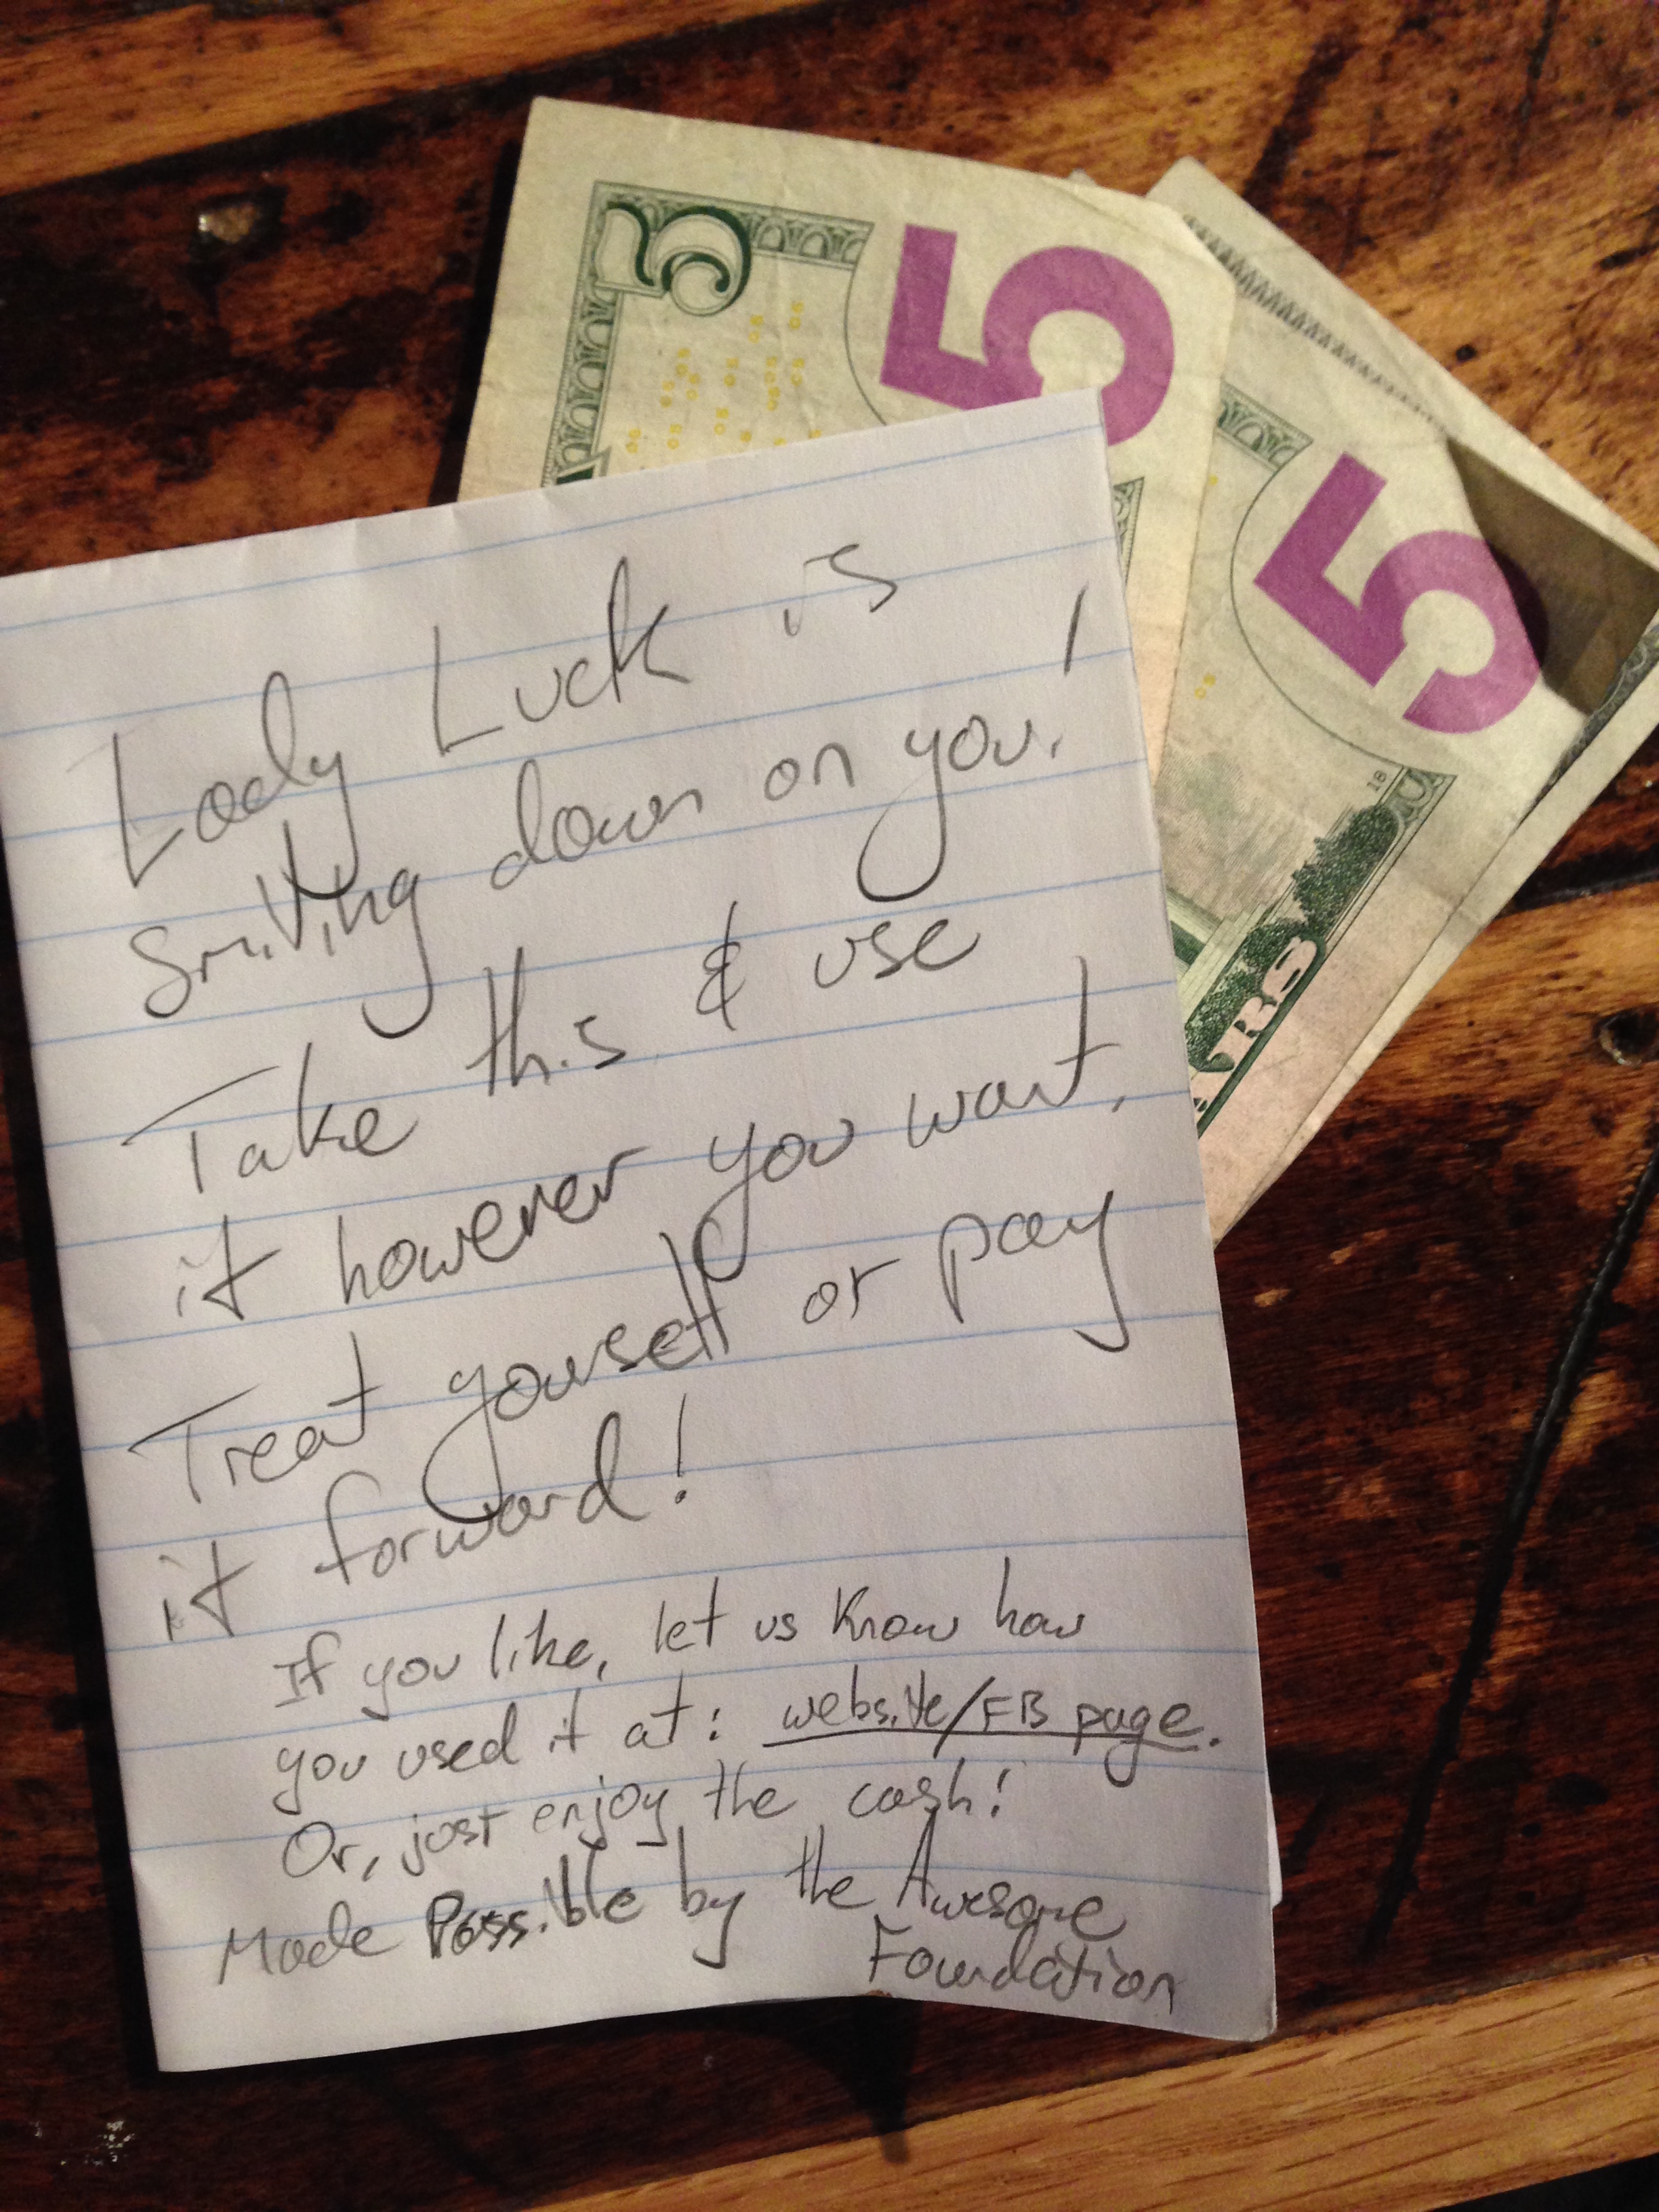 5
5
5
18
Lady Luck is
Smiling down on you!
Take this & use
it however you want.
Treat yourself or pay
it forward!
If you like, let us know how
you used it at: website/FB page.
Or, just enjoy the cash!
Made Possible by the Awesome
Foundation